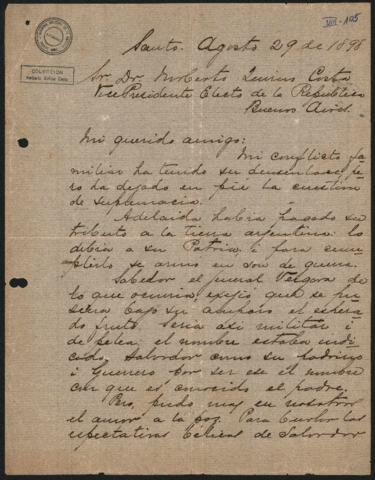 VIII-105
COLECCION
Santo. Agosto 29 de 1898
Sr. Dr. Norberto Quirno Costa
Vice Presidente Electo de la Republica
Buenos Aires.
Mi querido amigo:
Mi conflicto fa
miliar ha tenido su desenlace, pe
ro ha dejado en pie la cuestion
de supremacia.
Adelaida habia pagado su
tributo a la tierra argentina: lo
debia a su Patria i para cum
plirlo se armó en son de guerra.
Sabedor el jeneral Vergara de
lo que ocurria, exijió que se pu
siera bajo su amparo el espera
do fruto. Seria asi militar i
de pelea, el nombre estaba indi
cado, Salvador como su padrino
i Guerrero por ser ese el nombre
con que es conocido el padre.
Pero, pudo mas en nosotros
el amor a la paz. Para burlar las
espectativas belicas de Salvador